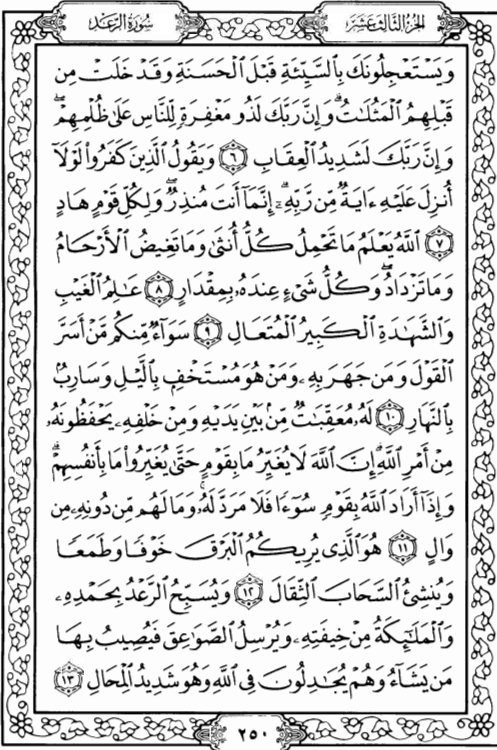 الجزء الثالث عشر
سورة الرعد
وَيَسْتَعْجِلُونَكَ بِالسَّيِّئَةِ قَبْلَ الْحَسَنَةِ وَقَدْ خَلَتْ مِن
قَبْلِهِمُ الْمَثُلَاتُ ۗ وَإِنَّ رَبَّكَ لَذُو مَغْفِرَةٍ لِّلنَّاسِ عَلَىٰ ظُلْمِهِمْ ۖ
وَإِنَّ رَبَّكَ لَشَدِيدُ الْعِقَابِ ٦ وَيَقُولُ الَّذِينَ كَفَرُوا لَوْلَا
أُنزِلَ عَلَيْهِ ءَايَةٌ مِّن رَّبِّهِ ۗ إِنَّمَا أَنتَ مُنذِرٌ ۖ وَلِكُلِّ قَوْمٍ هَادٍ
٧ اللَّهُ يَعْلَمُ مَا تَحْمِلُ كُلُّ أُنثَىٰ وَمَا تَغِيضُ الْأَرْحَامُ
وَمَا تَزْدَادُ ۖ وَكُلُّ شَىْءٍ عِندَهُ بِمِقْدَارٍ ٨ عَالِمُ الْغَيْبِ
وَالشَّهَادَةِ الْكَبِيرُ الْمُتَعَالِ ٩ سَوَاءٌ مِّنكُم مَّنْ أَسَرَّ
الْقَوْلَ وَمَن جَهَرَ بِهِ وَمَنْ هُوَ مُسْتَخْفٍ بِاللَّيْلِ وَسَارِبٌ
بِالنَّهَارِ ١٠ لَهُ مُعَقِّبَاتٌ مِّن بَيْنِ يَدَيْهِ وَمِنْ خَلْفِهِ يَحْفَظُونَهُ
مِنْ أَمْرِ اللَّهِ ۗ إِنَّ اللَّهَ لَا يُغَيِّرُ مَا بِقَوْمٍ حَتَّىٰ يُغَيِّرُوا مَا بِأَنفُسِهِمْ ۗ
وَإِذَا أَرَادَ اللَّهُ بِقَوْمٍ سُوءًا فَلَا مَرَدَّ لَهُ ۚ وَمَا لَهُم مِّن دُونِهِ مِن
وَالٍ ١١ هُوَ الَّذِى يُرِيكُمُ الْبَرْقَ خَوْفًا وَطَمَعًا
وَيُنشِئُ السَّحَابَ الثِّقَالَ ١٢ وَيُسَبِّحُ الرَّعْدُ بِحَمْدِهِ
وَالْمَلَٰئِكَةُ مِنْ خِيفَتِهِ وَيُرْسِلُ الصَّوَاعِقَ فَيُصِيبُ بِهَا
مَن يَشَاءُ وَهُمْ يُجَادِلُونَ فِى اللَّهِ وَهُوَ شَدِيدُ الْمِحَالِ ١٣
٢٥٠